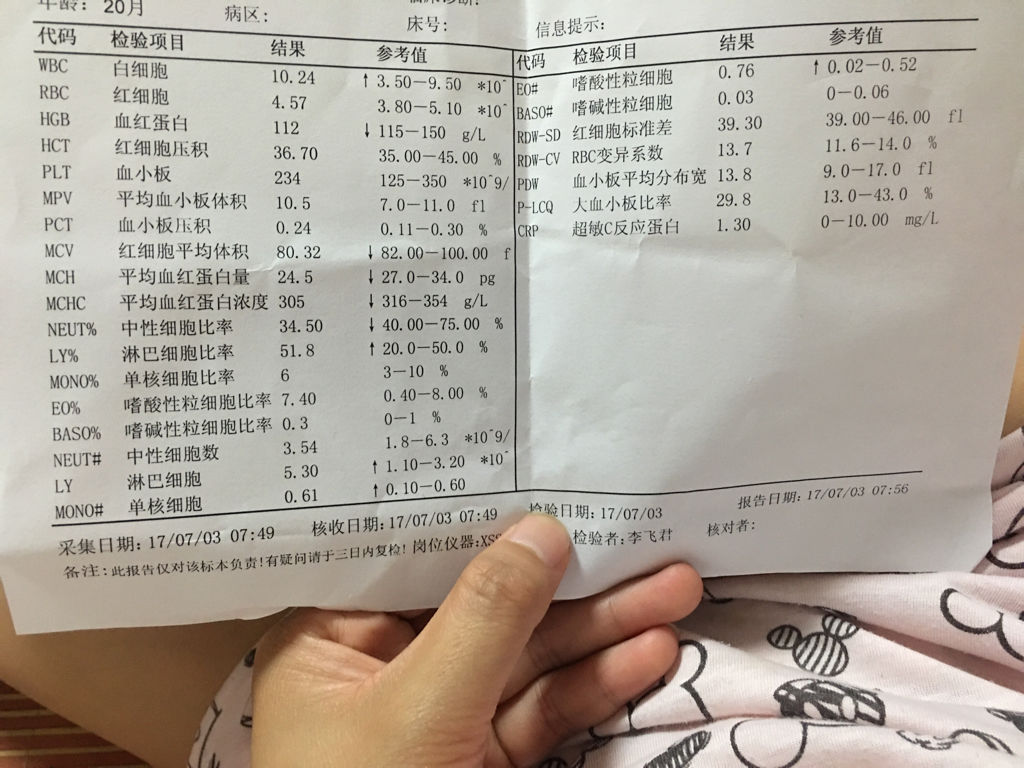 年龄: 20月
病区:
床号:
信息提示:
代码 检验项目 结果 参考值
WBC 白细胞 10.24 ↑ 3.50—9.50 *10^
RBC 红细胞 4.57 3.80—5.10 *10^
HGB 血红蛋白 112 ↓ 115—150 g/L
HCT 红细胞压积 36.70 35.00—45.00 %
PLT 血小板 234 125—350 *10^9/
MPV 平均血小板体积 10.5 7.0—11.0 fl
PCT 血小板压积 0.24 0.11—0.30 %
MCV 红细胞平均体积 80.32 ↓ 82.00—100.00 f
MCH 平均血红蛋白量 24.5 ↓ 27.0—34.0 pg
MCHC 平均血红蛋白浓度 305 ↓ 316—354 g/L
NEUT% 中性细胞比率 34.50 ↓ 40.00—75.00 %
LY% 淋巴细胞比率 51.8 ↑ 20.0—50.0 %
MONO% 单核细胞比率 6 3—10 %
EO% 嗜酸性粒细胞比率 7.40 0.40—8.00 %
BASO% 嗜碱性粒细胞比率 0.3 0—1 %
NEUT# 中性细胞数 3.54 1.8—6.3 *10^9/
LY 淋巴细胞 5.30 ↑ 1.10—3.20 *10^
MONO# 单核细胞 0.61 ↑ 0.10—0.60
代码 检验项目 结果 参考值
EO# 嗜酸性粒细胞 0.76 ↑ 0.02—0.52
BASO# 嗜碱性粒细胞 0.03 0—0.06
RDW-SD 红细胞标准差 39.30 39.00—46.00 fl
RDW-CV RBC变异系数 13.7 11.6—14.0 %
PDW 血小板平均分布宽 13.8 9.0—17.0 fl
P-LCQ 大血小板比率 29.8 13.0—43.0 %
CRP 超敏C反应蛋白 1.30 0—10.00 mg/L
采集日期: 17/07/03 07:49 核收日期: 17/07/03 07:49 检验日期: 17/07/03 报告日期: 17/07/03 07:56
备注: 此报告仅对该标本负责!有疑问请于三日内复检! 岗位仪器: XS 检验者: 李飞君 核对者: